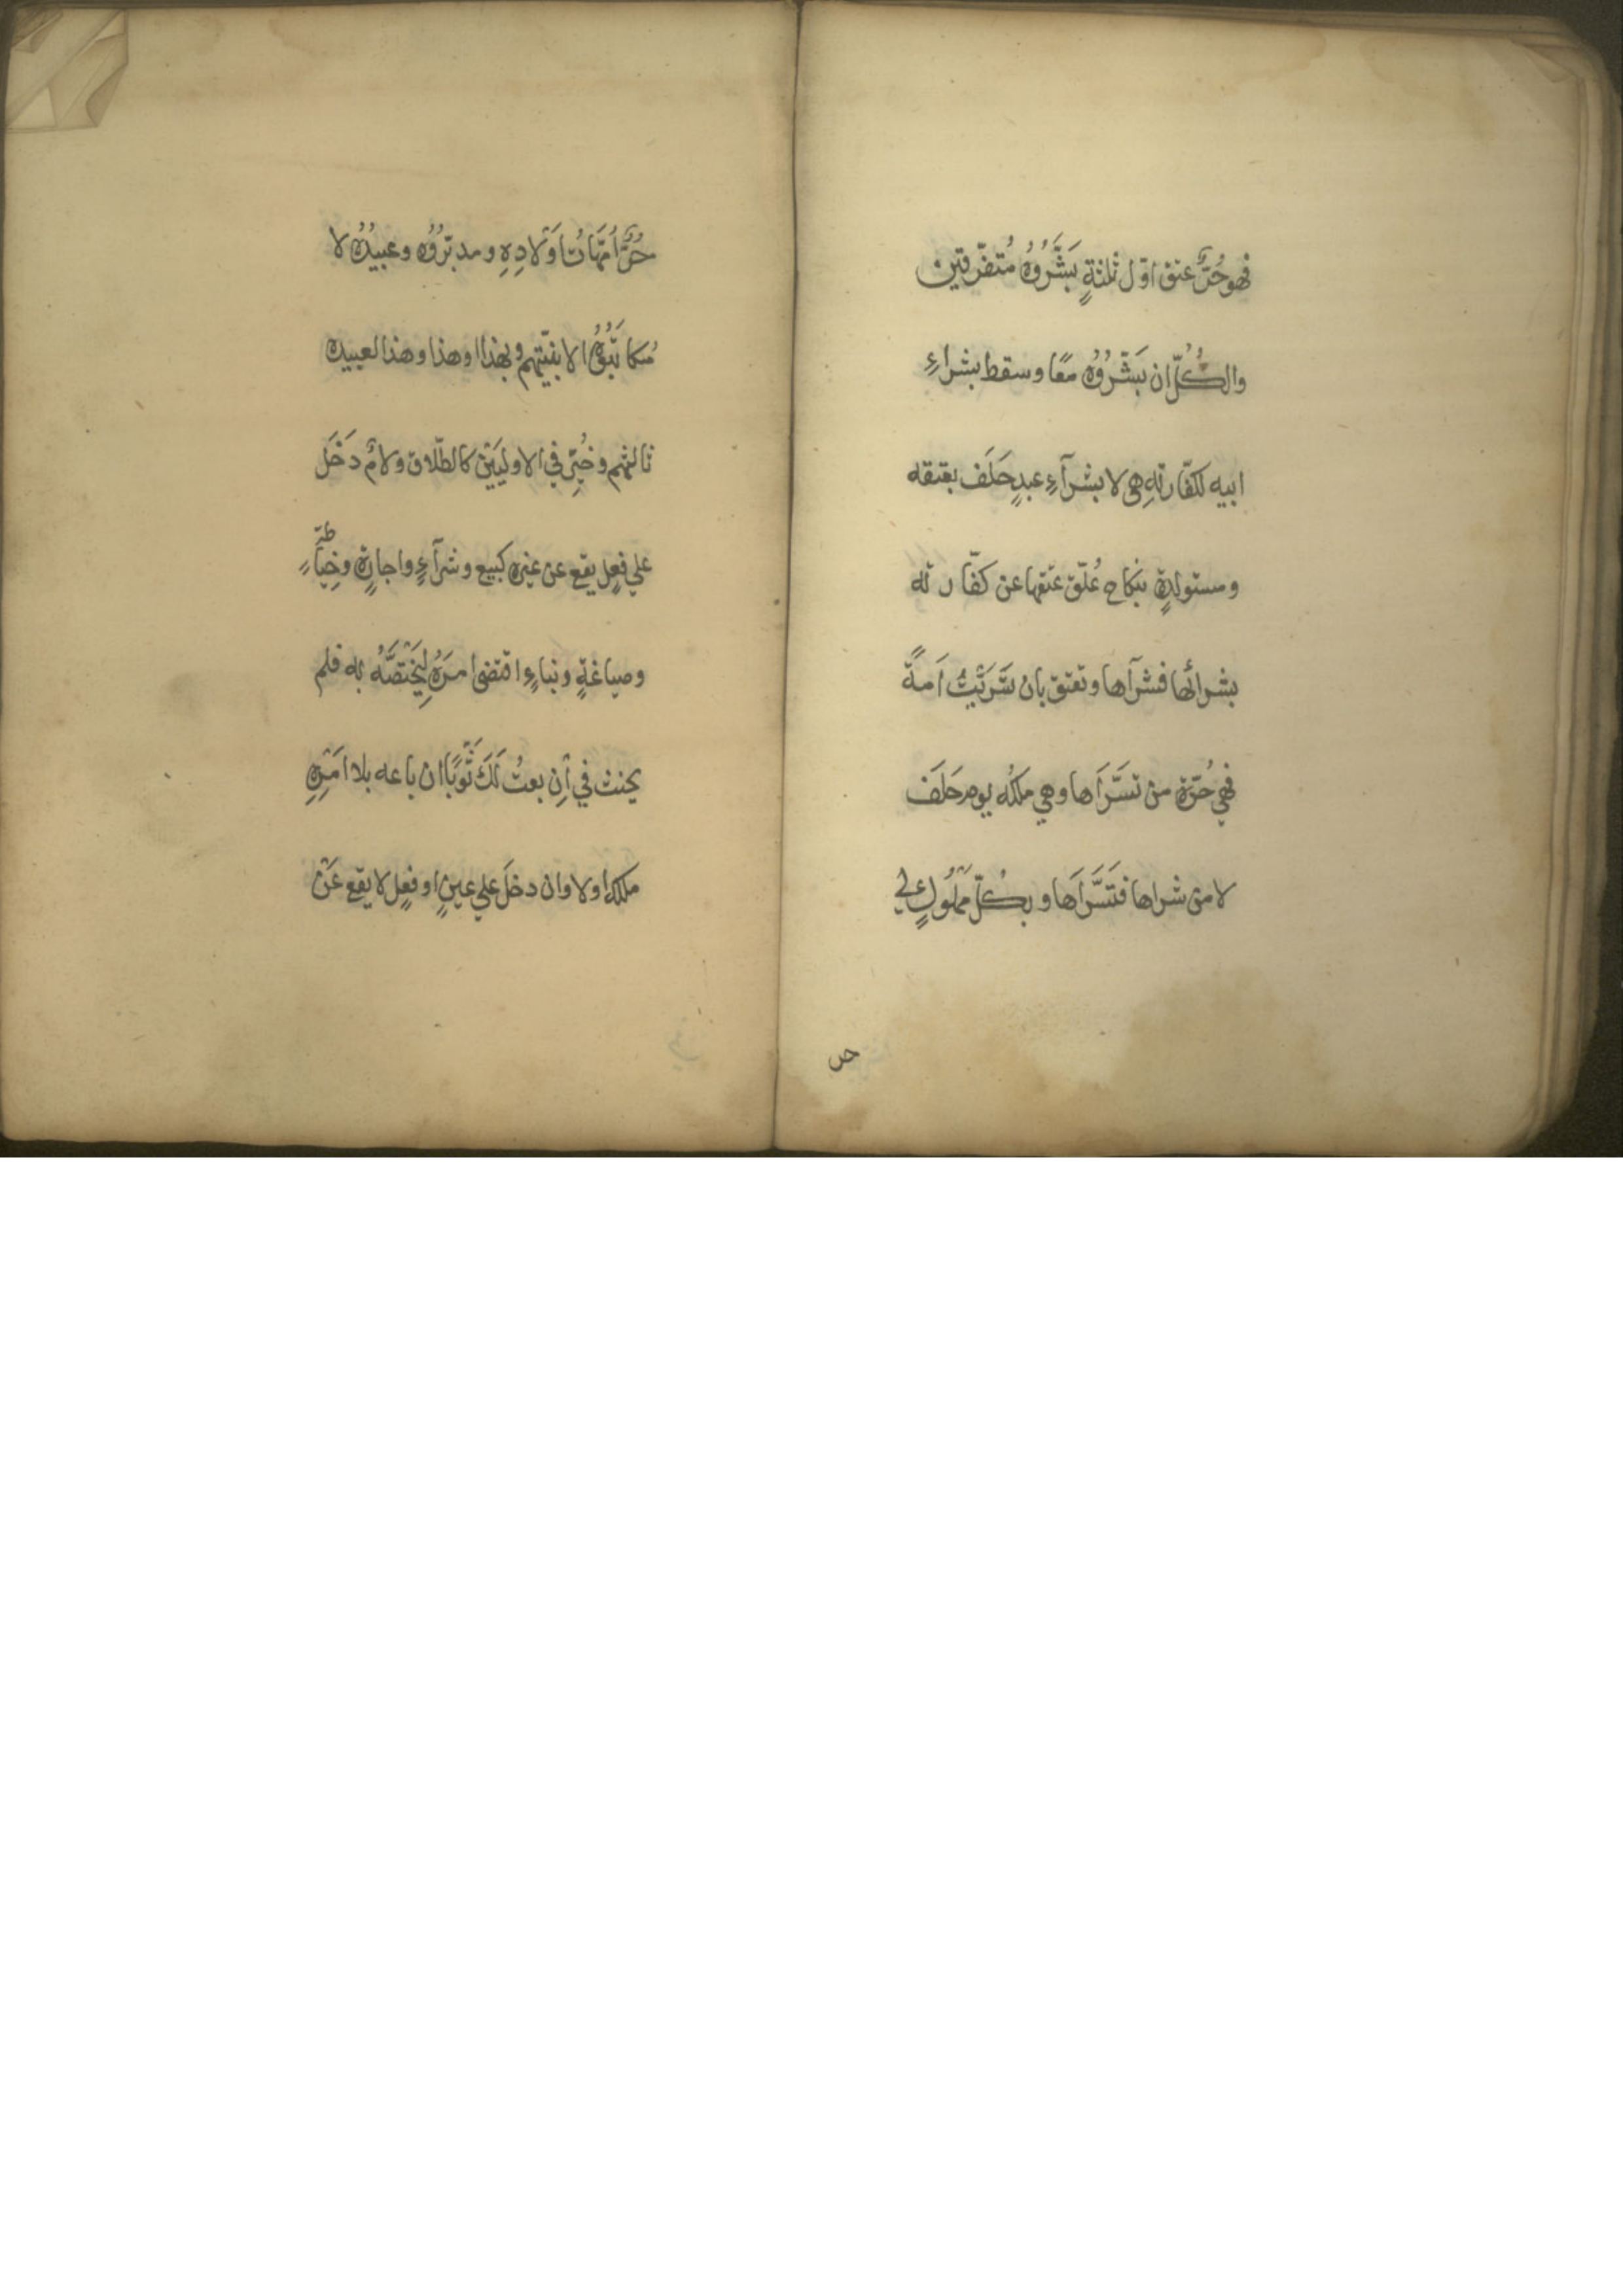 فهو حُرٌّ عتق اوّل ثلثةٍ بَشَّرُوُه مُتفرّقين
والكُلُّ ان بَشَّرُوُه معًا وسقط بشراءِ
ابيه لكفّارتهِ هي لا بشرآءِ عبدٍ حَلَف بعتقه
ومستولدةٍ بنكاح عُلّق عتقها عن كفّارته
بشرائها فشرآها وتعتق بان تسَّرَيْتُ اَمةً
فهي حُرّة من تسَّرَاَها وهي ملكُه يوم حَلَف
لا من شراها فتَسَّرَاَها وبكُلّ مَمْلُوكٍ لي
حر
حُرٌّ اُمَّهَاتُ اَوْلادِهِ ومدبّرُوُه وعبيدُه لا
مُكاتَبُوُه الا بنيّتهم وبهذا اوهذا وهذا لعبيده
ثالثهم وخُيِّر في الاولَيَيْن كالطّلاق ولامٌ دَخَل
علي فعلٍ يقع عن غيره كبيع وشرآءٍ واجارةٍ وخِيَاطةٍ
وصياغةٍ وبناءٍ اقتضى امرَهُ لِيَخْتصَّهُ به فلم
يحنث في اِن بعتُ لَكَ ثَوْبًا ان باعه بلا امْرِهِ
ملكه اولا وان دخَل علي عينٍ او فعلٍ لا يقع عَنْ